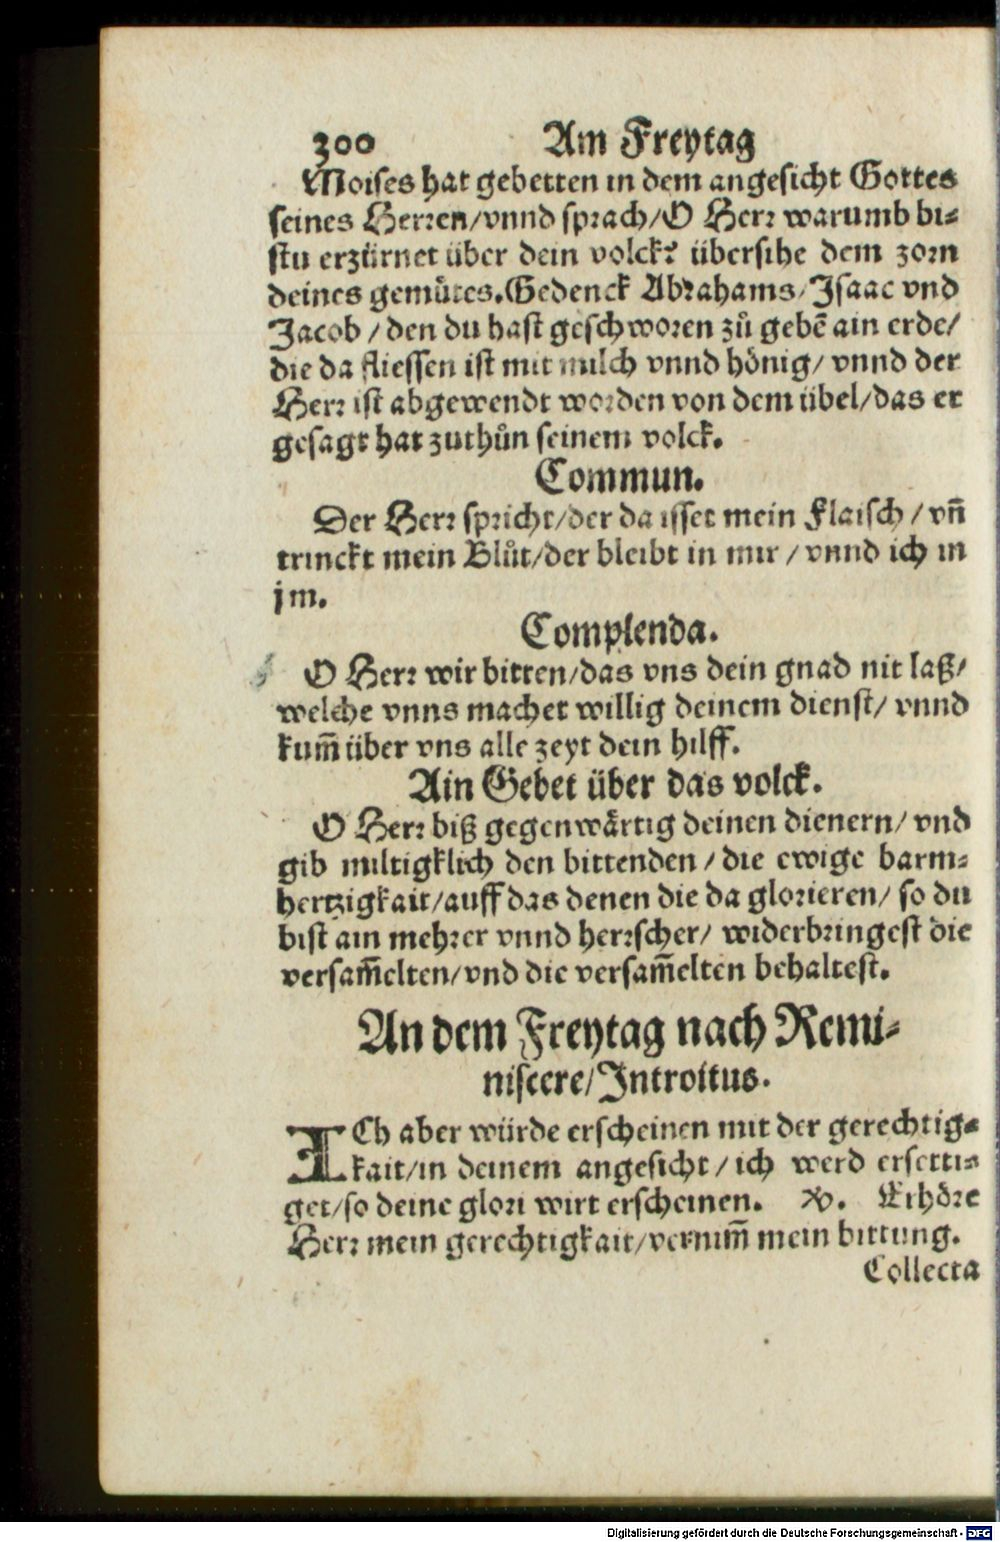 300 Am Freytag
Moises hat gebetten in dem angesicht Gottes
seines Herren/vnnd sprach/O Herr warumb bi⸗
stu erzürnet über dein volck? übersihe dem zorn
deines gemütes.Gedenck Abrahams/Isaac vnd
Jacob/den du hast geschworen zů gebē ain erde/
die da fliessen ist mit milch vnnd hönig/vnnd der
Herr ist abgewendt worden von dem übel/das er
gesagt hat zuthůn seinem volck.
Commun.
Der Herr spricht/der da isset mein Flaisch/vn̄
trinckt mein Blůt/der bleibt in mir/vnnd ich in
jm.
Complenda.
O Herr wir bitten/das vns dein gnad nit laß/
welche vnns machet willig deinem dienst/vnnd
kum̄ über vns alle zeyt dein hilff.
Ain Gebet über das volck.
O Herr biß gegenwärtig deinen dienern/vnd
gib miltigklich den bittenden/die ewige barm⸗
hertzigkait/auff das denen die da glorieren/so du
bist ain mehrer vnnd herrscher/widerbringest die
versam̄elten/vnd die versam̄elten behaltest.
An dem Freytag nach Remi⸗
niscere/Introitus.
ICh aber würde erscheinen mit der gerechtig⸗
kait/in deinem angesicht/ich werd ersetti⸗
get/so deine glori wirt erscheinen. ℣. Erhöre
Herr mein gerechtigkait/vernim̄ mein bittung.
Collecta
Digitalisierung gefördert durch die Deutsche Forschungsgemeinschaft - DFG